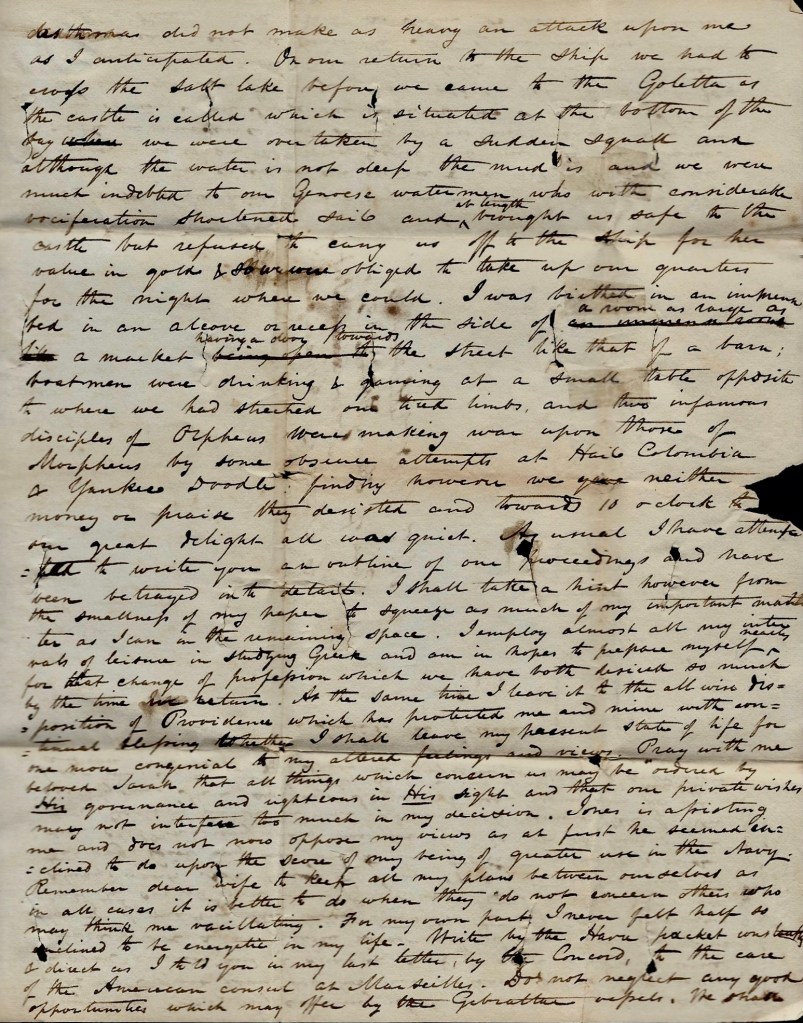 did not make as heavy an attack upon me
as I anticipated. On our return to the ship we had to
cross the salt lake before we came to the Goletta as
the castle is called which is situated at the bottom of the
bay when we were overtaken by a sudden squall and
although the water is not deep the mud is and we were
much indebted to our Genoese watermen who with considerable
vociferation shortened sail and at length brought us safe to the
castle but refused to carry us off to the ship for her
value in gold & so we were obliged to take up our quarters
for the night where we could. I was birthed in an immense
bed in an alcove or recess in the side of an immense room a room as large as
a market being open to having a door towards the street like that of a barn;
boatmen were drinking & gaming at a small table opposite
to where we had streched our tired limbs, and two infamous
disciples of Orpheus were making war upon those of
Morpheus by some obscure attempts at Hail Colombia
& Yankee Doodle: finding however we gave neither
money or praise they desisted and towards 10 o clock to
our great delight all was quiet. As usual I have attemp
=ted to write you an outline of our proceedings and have
been betrayed into detail. I shall take a hint however from
the smallness of my paper to squeeze as much of my important mat
ter as I can in the remaining space. I employ almost all my inter
vals of leisure in studying Greek and am in hopes to prepare myself
for that change of profession which we have both desired so much
by the time we return. At the same time I leave it to the all wise dis=
=position of Providence which has protected me and mine with con=
=tinual blessing whether I shall leave my present state of life for
one more congenial to my altered feelings and views. Pray with me
beloved Sarah that all things which concern us may be ordered by
His governance and righteous in His sight and that our private wishes
may not interfere too much in my decision. Jones is assisting
me and does not now oppose my views as at first he seemed in=
=clined to do upon the score of my being of greater use in the Navy.
Remember dear wife to keep all my plans between ourselves as
in all cases it is better to do when they do not concern others who
may think me vacillating. For my own part I never felt half so
inclined to be energetic in my life. Write by the Havre packet constantly
& direct as I told you in my last letter, by the Concord, to the care
of the American consul at Marseilles. Do not neglect any good
opportunities which may offer by the Gibraltar vessels. We shall